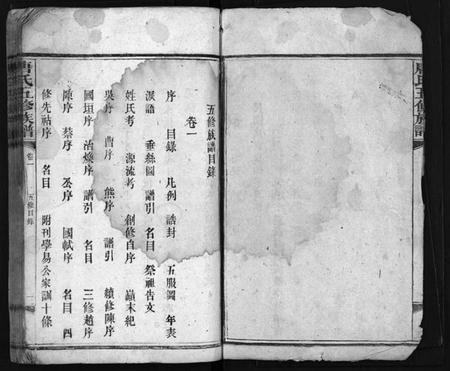 五修族譜目錄
卷一
序 目錄 凡例 誥封 五服圖 年表
淚語 垂絲圖 譜引 名目 祭祖告文
姓氏考 源流考 創修自序 巔末紀
吳序 曹序 熊序 譜引 續修陳序
國垣序 治煥序 譜引 名目 三修趙序
陳序 蔡序 丞序 國軾序 名目 四
修先祐序 名目 附刊學易公家訓十條
唐氏五修族譜
卷一
五修目錄
一
唐氏五修族譜